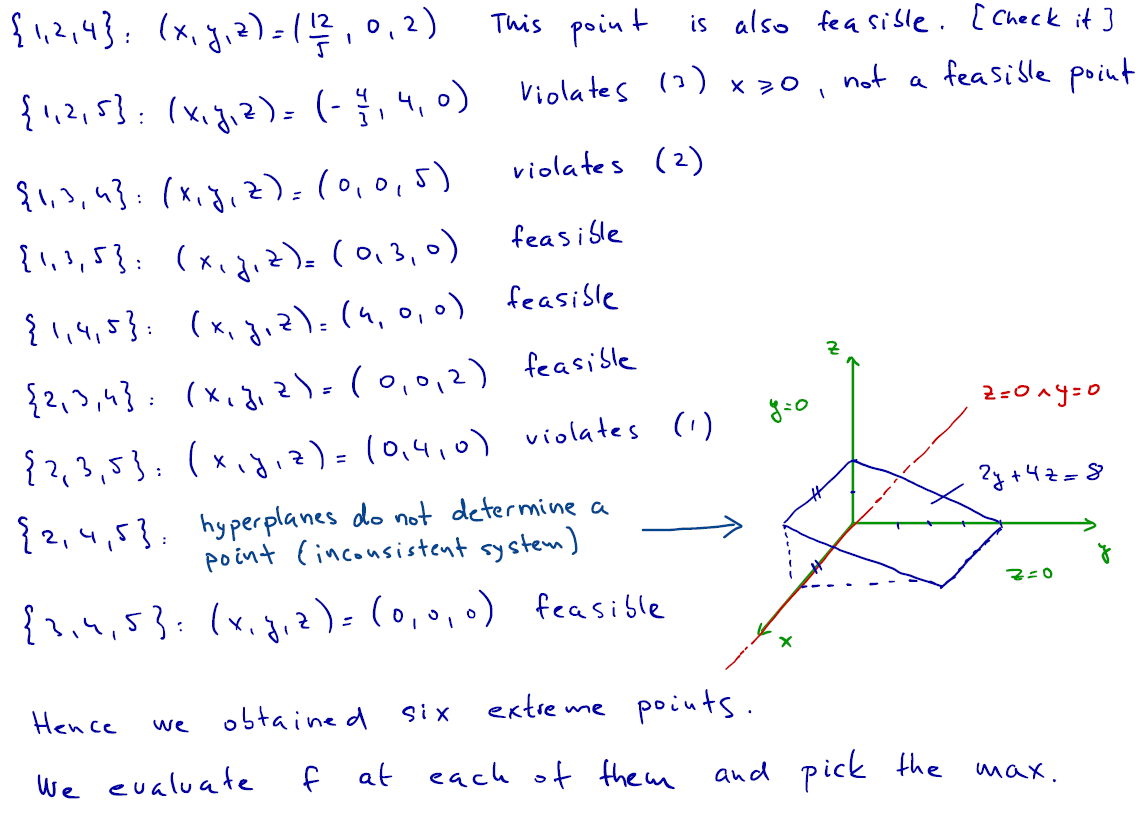 {1,2,4}: (x,y,z)=(12/5, 0, 2) This point is also feasible. [Check it]
{1,2,5}: (x,y,z)= (-4/3, 4, 0) Violates (3) x ⩾ 0, not a feasible point
{1,3,4}: (x,y,z)=(0,0,5) violates (2)
{1,3,5}: (x,y,z)=(0,3,0) feasible
{1,4,5}: (x,y,z)=(4,0,0) feasible
{2,3,4}: (x,y,z)=(0,0,2) feasible
{2,3,5}: (x,y,z)=(0,4,0) violates (1)
{2,4,5}: hyperplanes do not determine a
point (inconsistent system)
{3,4,5}: (x,y,z)=(0,0,0) feasible
z
y=0
z=0 ∧ y=0
2y+4z=8
y
z=0
x
Hence we obtained six extreme points.
We evaluate f at each of them and pick the max.